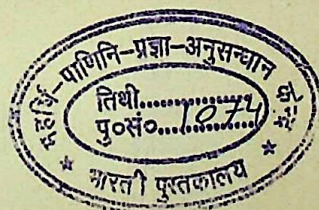 महर्षि-पाणिनि-प्रज्ञा-अनुसन्धान केन्द्र
तिथी..................
पु०सं०...1074
* भारती पुस्तकालय *